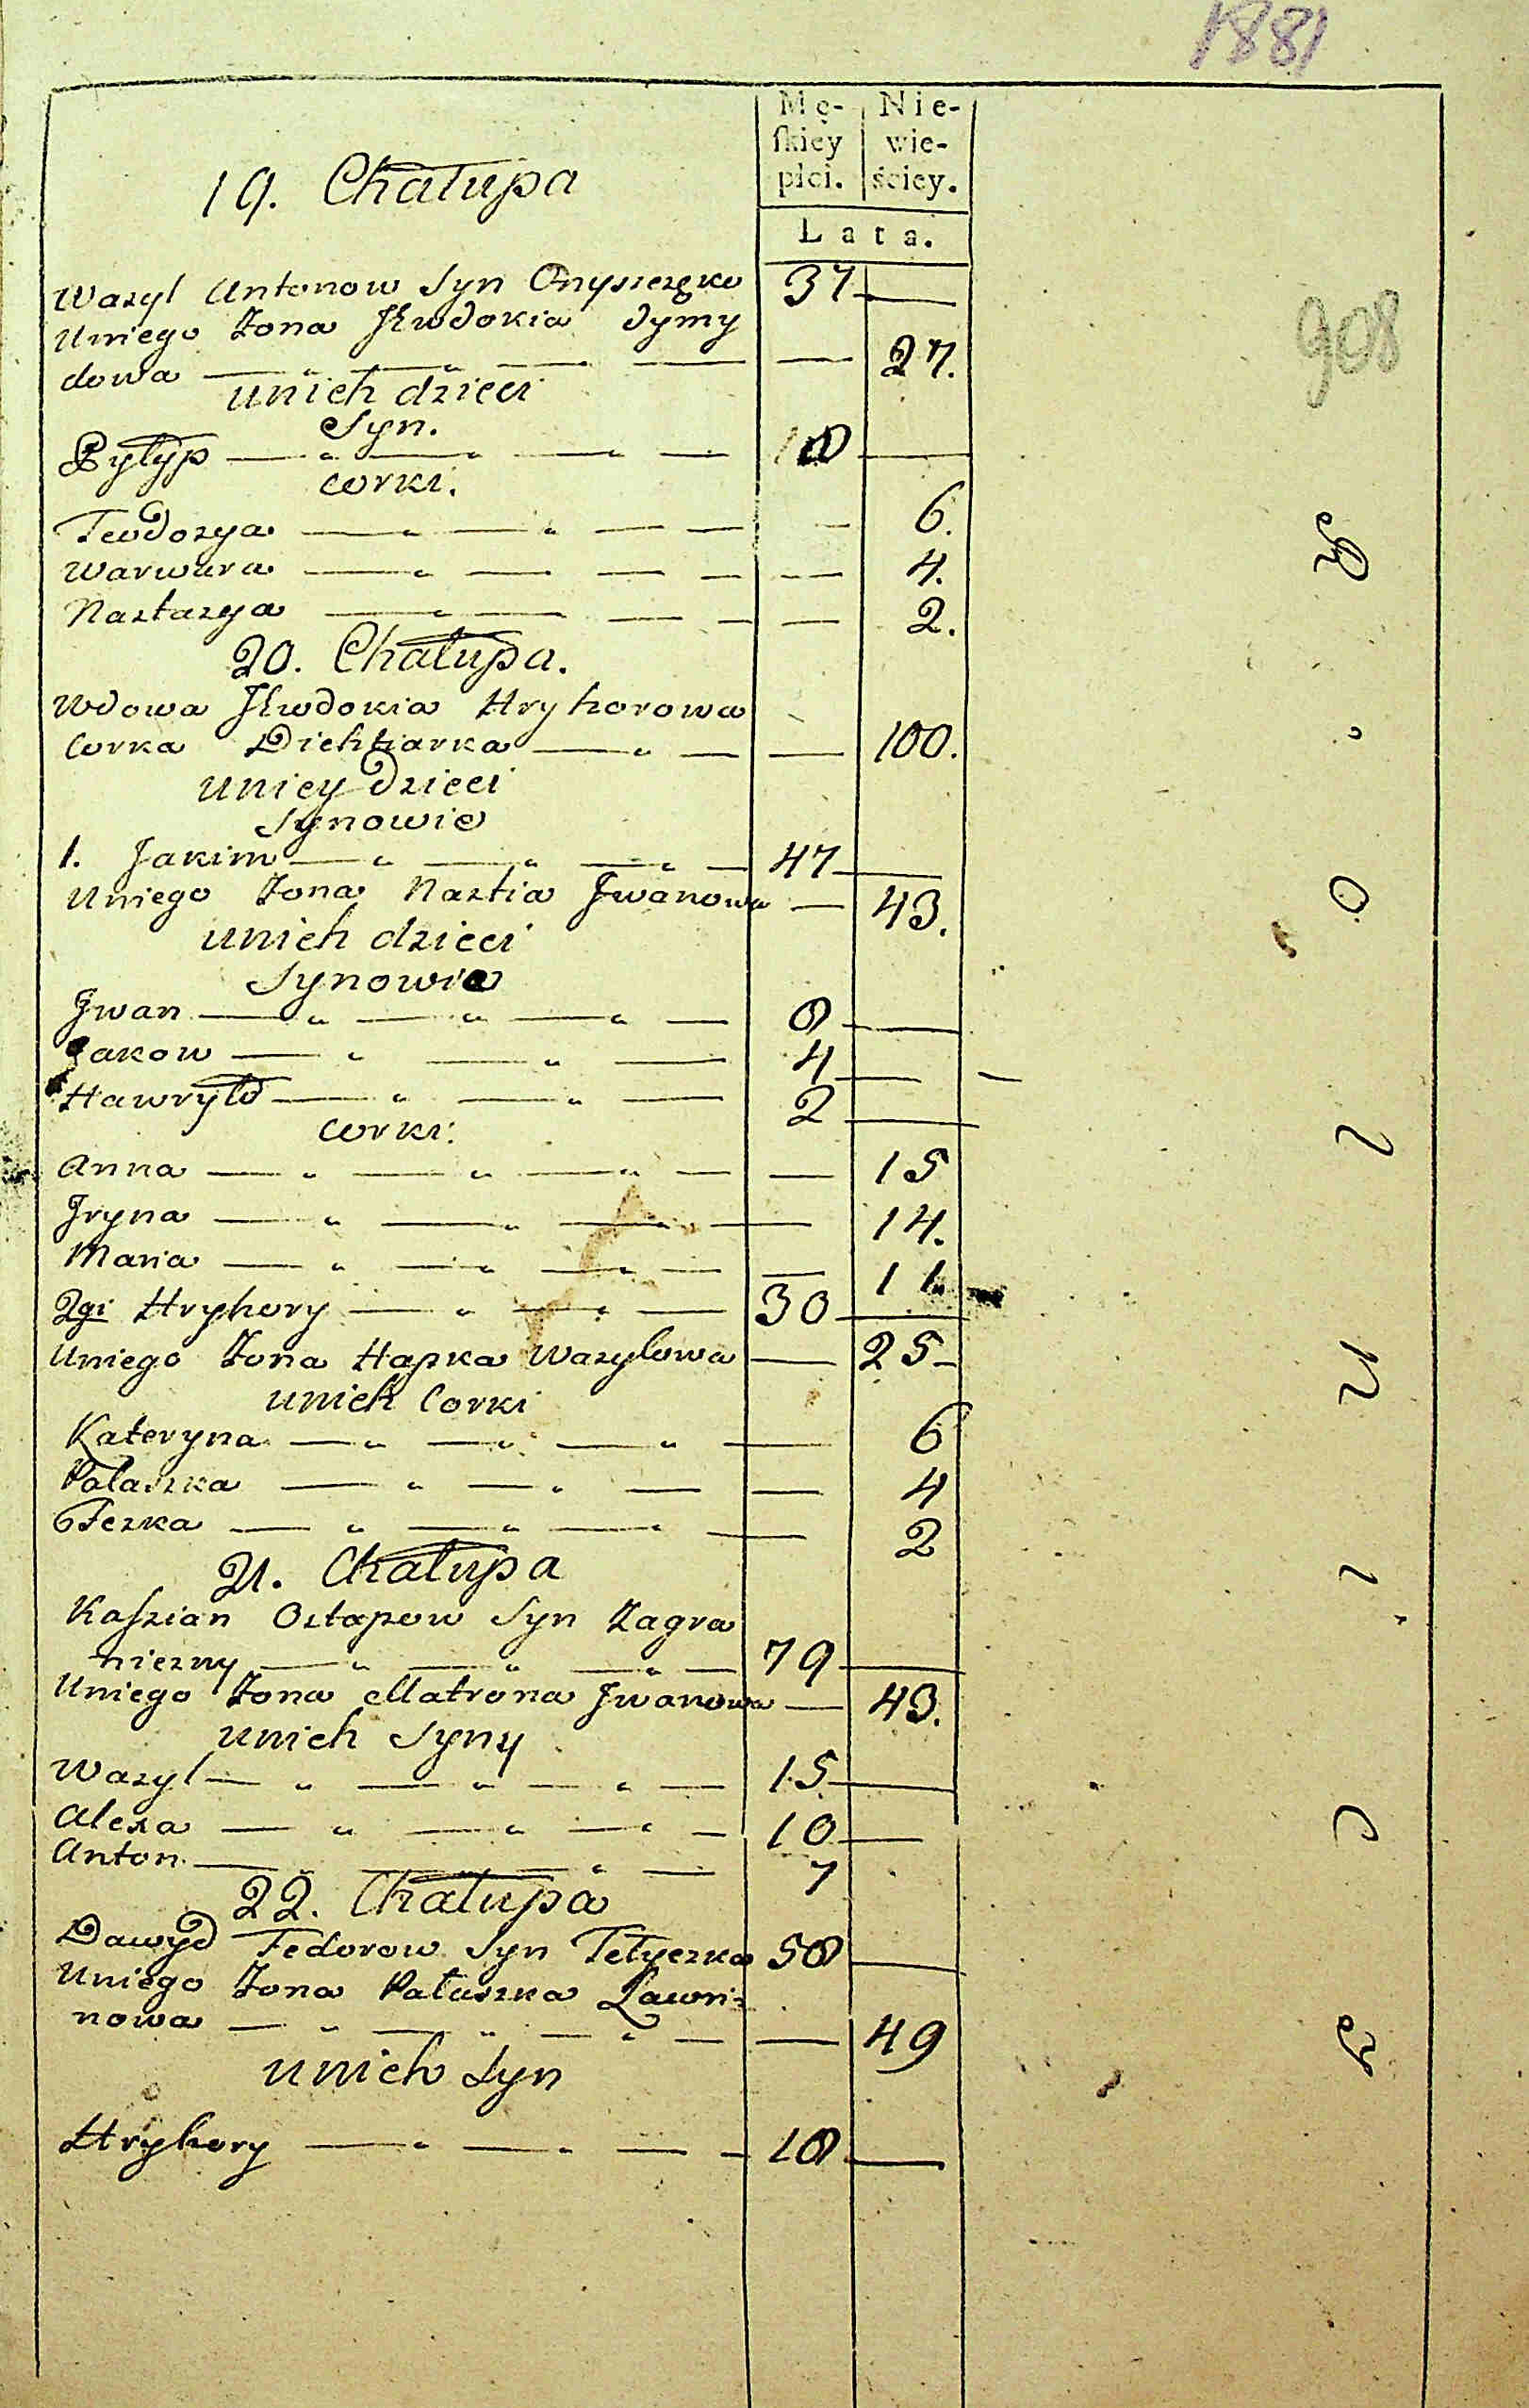 1881
Mę- Nie-
skiey wie-
płci. ściey.
Lata.
908
19. Chałupa
Wasyl Antonow Syn Onysieczko 37
Uniego Zona Jewdokia Dymy
dowa 27.
unich dzieci
Syn.
Pyłyp 18
corki.
Teodozya 6.
Warwara 4.
Nastazya 2.
20. Chałupa.
Wdowa Jewdokia Hryhorowa
Corka Diehtiarka 100.
uniey dzieci
Synowie
1. Jakim 47
Uniego Zona Nastia Jwanowa 43.
unich dzieci
Synowie
Jwan 8
Jakow 4
Hawryło 2
corki.
Anna 15
Jryna 14.
Maria 11
2gi Hryhory 30
Uniego Zona Hapka Wasylowa 25
unich Corki
Kateryna 6
Pałaszka 4
Feska 2
21. Chałupa
Kaszian Ostapow Syn Zagra
niczny 79
Uniego Zona Matrona Jwanowa 43.
unich Syny
Wasyl 15
Alexa 10
Anton 7
22. Chałupa
Dawyd Fedorow Syn Tetyczka 58
Uniego Zona Pałaszka Ławri-
nowa 49
unich Syn
Hryhory 18